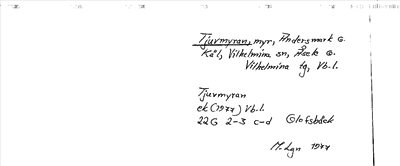 Tjuvmyran, myr, Åndersmark G.
Kål, Vilhelmina sn, Åsele G.
Vilhelmina tg, Vb.l.
Tjuvmyran
ek (1977) Vb.l.
22G 2-3 c-d Olofsbäck
M. Lgn 1977